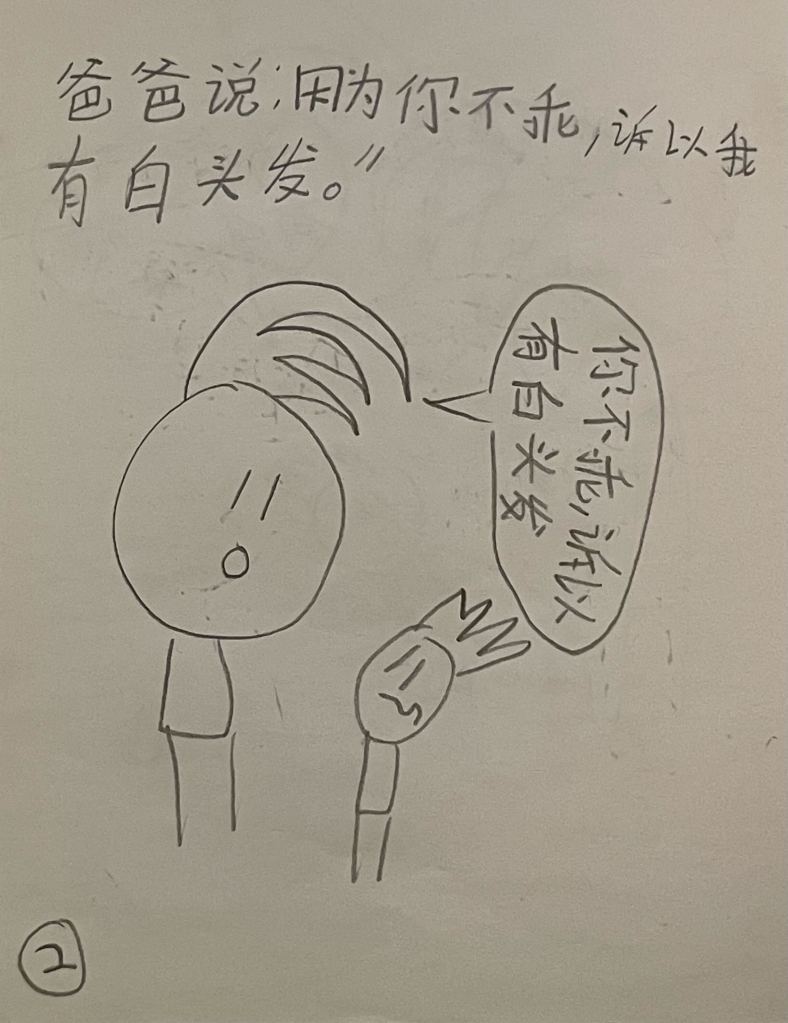 爸爸说：因为你不乖，诉以我
有白头发。”
你不乖，诉以
有白头发
2